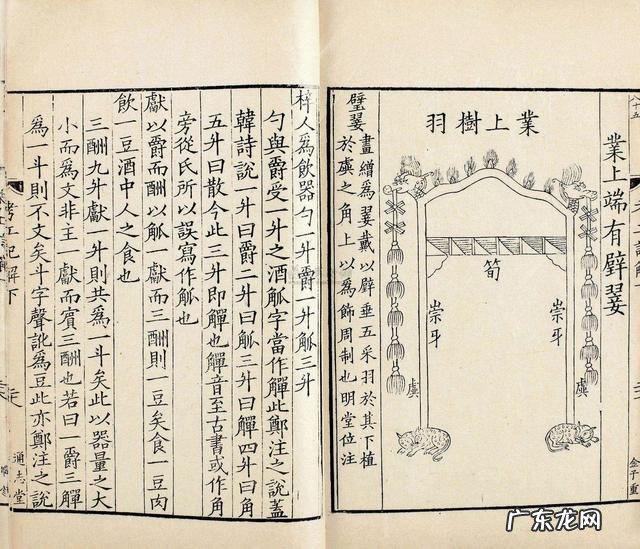 八十五
業上端有璧翣
業上樹羽
筍
崇牙
崇牙
虡
虡
璧翣
畫繒爲翣戴以璧垂五采羽於其下植
於虡之角上以爲飾周制也明堂位注
金子重
梓人爲飲器勺一升爵一升觚三升
勺與爵受一升之酒觚字當作觶此鄭注之說蓋
韓詩說一升曰爵二升曰觚三升曰觶四升曰角
五升曰散今此三升即觶也觶音至古書或作角
旁從氏所以誤寫作觚也
獻以爵而酬以觚一獻而三酬則一豆矣食一豆肉
飲一豆酒中人之食也
三酬九升獻一升則共爲一斗矣此以器量之大
小而爲文非主一獻而賓三酬也若曰一爵三觶
爲一斗則不文矣斗字聲訛爲豆此亦鄭注之說
考工記解下
通志堂
广东龙网